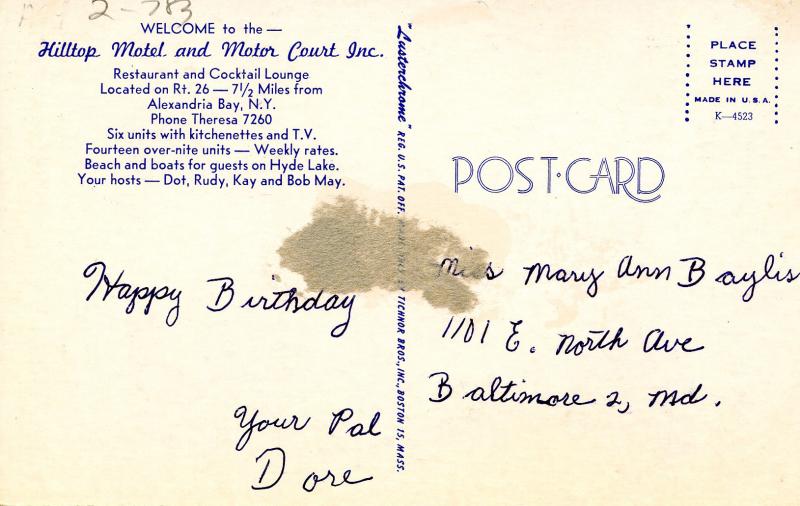 2-783
WELCOME to the —
Hilltop Motel and Motor Court Inc.
Restaurant and Cocktail Lounge
Located on Rt. 26 — 7½ Miles from
Alexandria Bay, N.Y.
Phone Theresa 7260
Six units with kitchenettes and T.V.
Fourteen over-nite units — Weekly rates.
Beach and boats for guests on Hyde Lake.
Your hosts — Dot, Rudy, Kay and Bob May.
Happy Birthday
Your Pal
Dore
"Lusterchrome" REG. U.S. PAT. OFF. MADE ONLY BY TICHNOR BROS., INC., BOSTON 15, MASS.
PLACE
STAMP
HERE
MADE IN U.S.A.
K—4523
POST·CARD
Miss Mary Ann Baylis
1101 E. North Ave
Baltimore 2, Md.